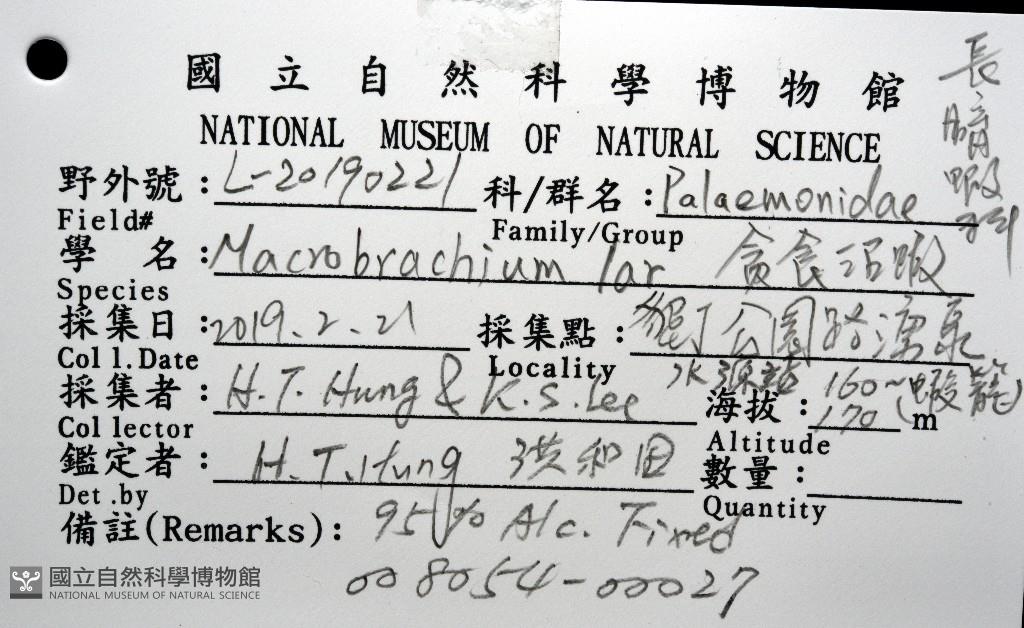 國立自然科學博物館
NATIONAL MUSEUM OF NATURAL SCIENCE
長臂蝦科
野外號:L-20190221 科/群名:Palaemonidae
Field# Family/Group
學 名:Macrobrachium lar 貪食沼蝦
Species
採集日:2019.2.21 採集點:墾丁公園路湧泉
Coll.Date Locality 水源站 (蝦籠)
採集者:H.T. Hung & K.S. Lee 海拔:160~170 m
Collector Altitude
鑑定者:H.T. Hung 洪和田 數量:
Det.by Quantity
備註(Remarks): 95% Alc. Fixed
008054-00027
國立自然科學博物館
NATIONAL MUSEUM OF NATURAL SCIENCE